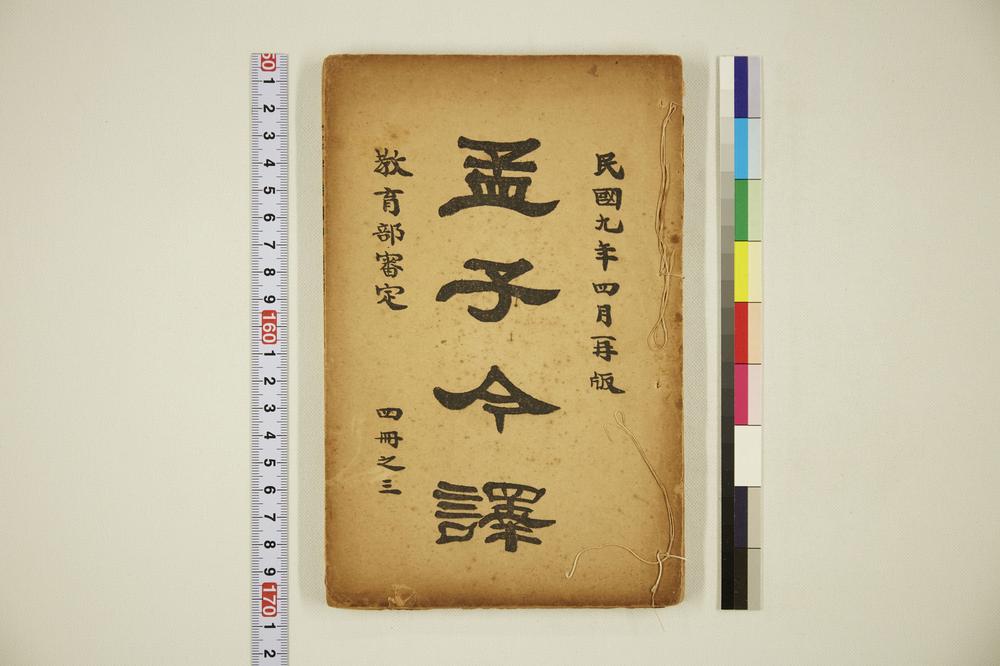 民國九年四月再版
孟子今譯
教育部審定
四冊之三
50 1 2 3 4 5 6 7 8 9 160 1 2 3 4 5 6 7 8 9 170 1 2